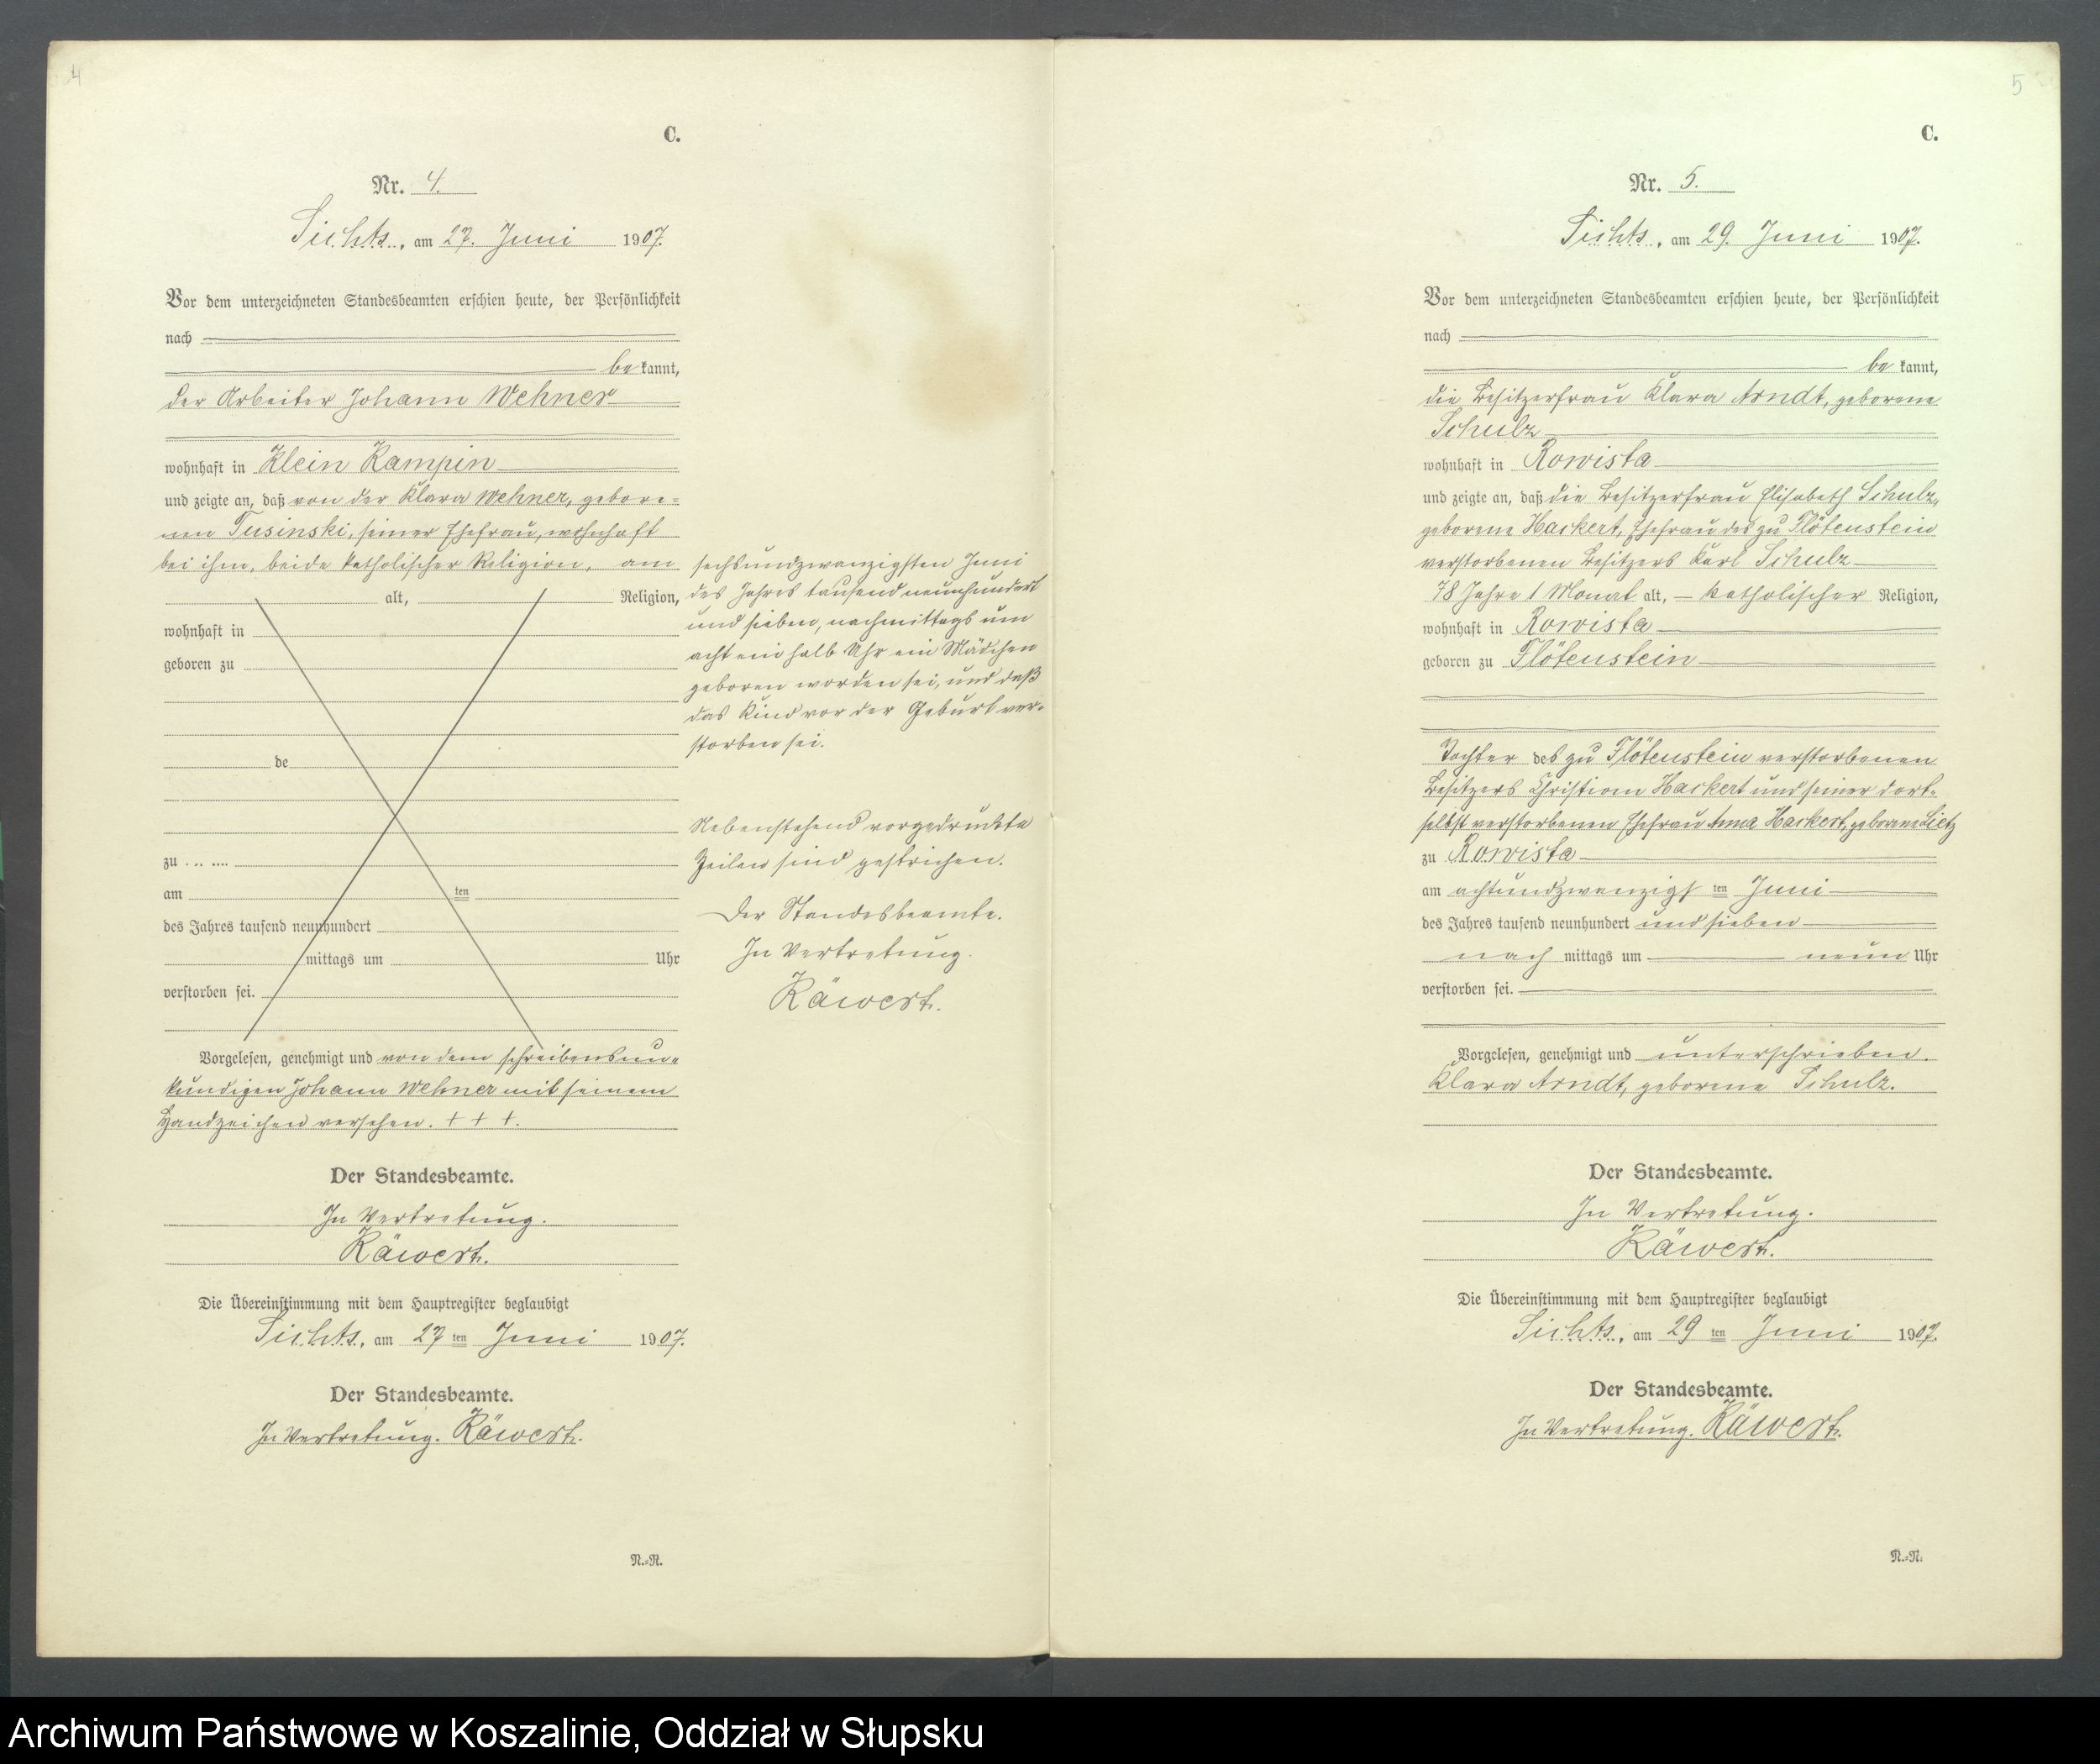 4
C.
Nr. 4.
Sichts, am 27. Juni 1907.
Vor dem unterzeichneten Standesbeamten erschien heute, der Persönlichkeit
nach
be kannt,
der Arbeiter Johann Wehner
wohnhaft in Klein Kampin
und zeigte an, daß von der Klara Wehner, gebore=
nen Tusinski, seiner Ehefrau, wohnhaft
bei ihm, beide katholischer Religion, am
alt, Religion,
wohnhaft in
geboren zu
de
zu
am ten
des Jahres tausend neunhundert
mittags um Uhr
verstorben sei.
sechsundzwanzigsten Juni
des Jahres tausend neunhundert
und sieben, nachmittags um
acht ein halb Uhr ein Mädchen
geboren worden sei, und daß
das Kind vor der Geburt ver=
storben sei.
Nebenstehend vorgedruckte
Zeilen sind gestrichen.
Der Standesbeamte.
In Vertretung.
Räwert.
Vorgelesen, genehmigt und von dem schreibensun=
kundigen Johann Wehner mit seinem
Handzeichen versehen. + + +.
Der Standesbeamte.
In Vertretung.
Räwert.
Die Übereinstimmung mit dem Hauptregister beglaubigt
Sichts, am 27 ten Juni 1907.
Der Standesbeamte.
In Vertretung. Räwert.
N.=N.
5
C.
Nr. 5.
Sichts, am 29. Juni 1907.
Vor dem unterzeichneten Standesbeamten erschien heute, der Persönlichkeit
nach
be kannt,
die Besitzerfrau Klara Arndt, geborene
Schulz
wohnhaft in Rowista
und zeigte an, daß die Besitzerfrau Elisabeth Schulz,
geborene Hackert, Ehefrau des zu Flötenstein
verstorbenen Besitzers Karl Schulz
78 Jahre 1 Monat alt, — katholischer Religion,
wohnhaft in Rowista
geboren zu Flötenstein
Tochter des zu Flötenstein verstorbenen
Besitzers Christian Hackert und seiner dort=
selbst verstorbenen Ehefrau Anna Hackert, geborene Lietz
zu Rowista
am achtundzwanzigs ten Juni
des Jahres tausend neunhundert und sieben
nach mittags um neun Uhr
verstorben sei.
Vorgelesen, genehmigt und unterschrieben.
Klara Arndt, geborene Schulz.
Der Standesbeamte.
In Vertretung.
Räwert.
Die Übereinstimmung mit dem Hauptregister beglaubigt
Sichts, am 29 ten Juni 1907.
Der Standesbeamte.
In Vertretung. Räwert.
N.=N.
Archiwum Państwowe w Koszalinie, Oddział w Słupsku